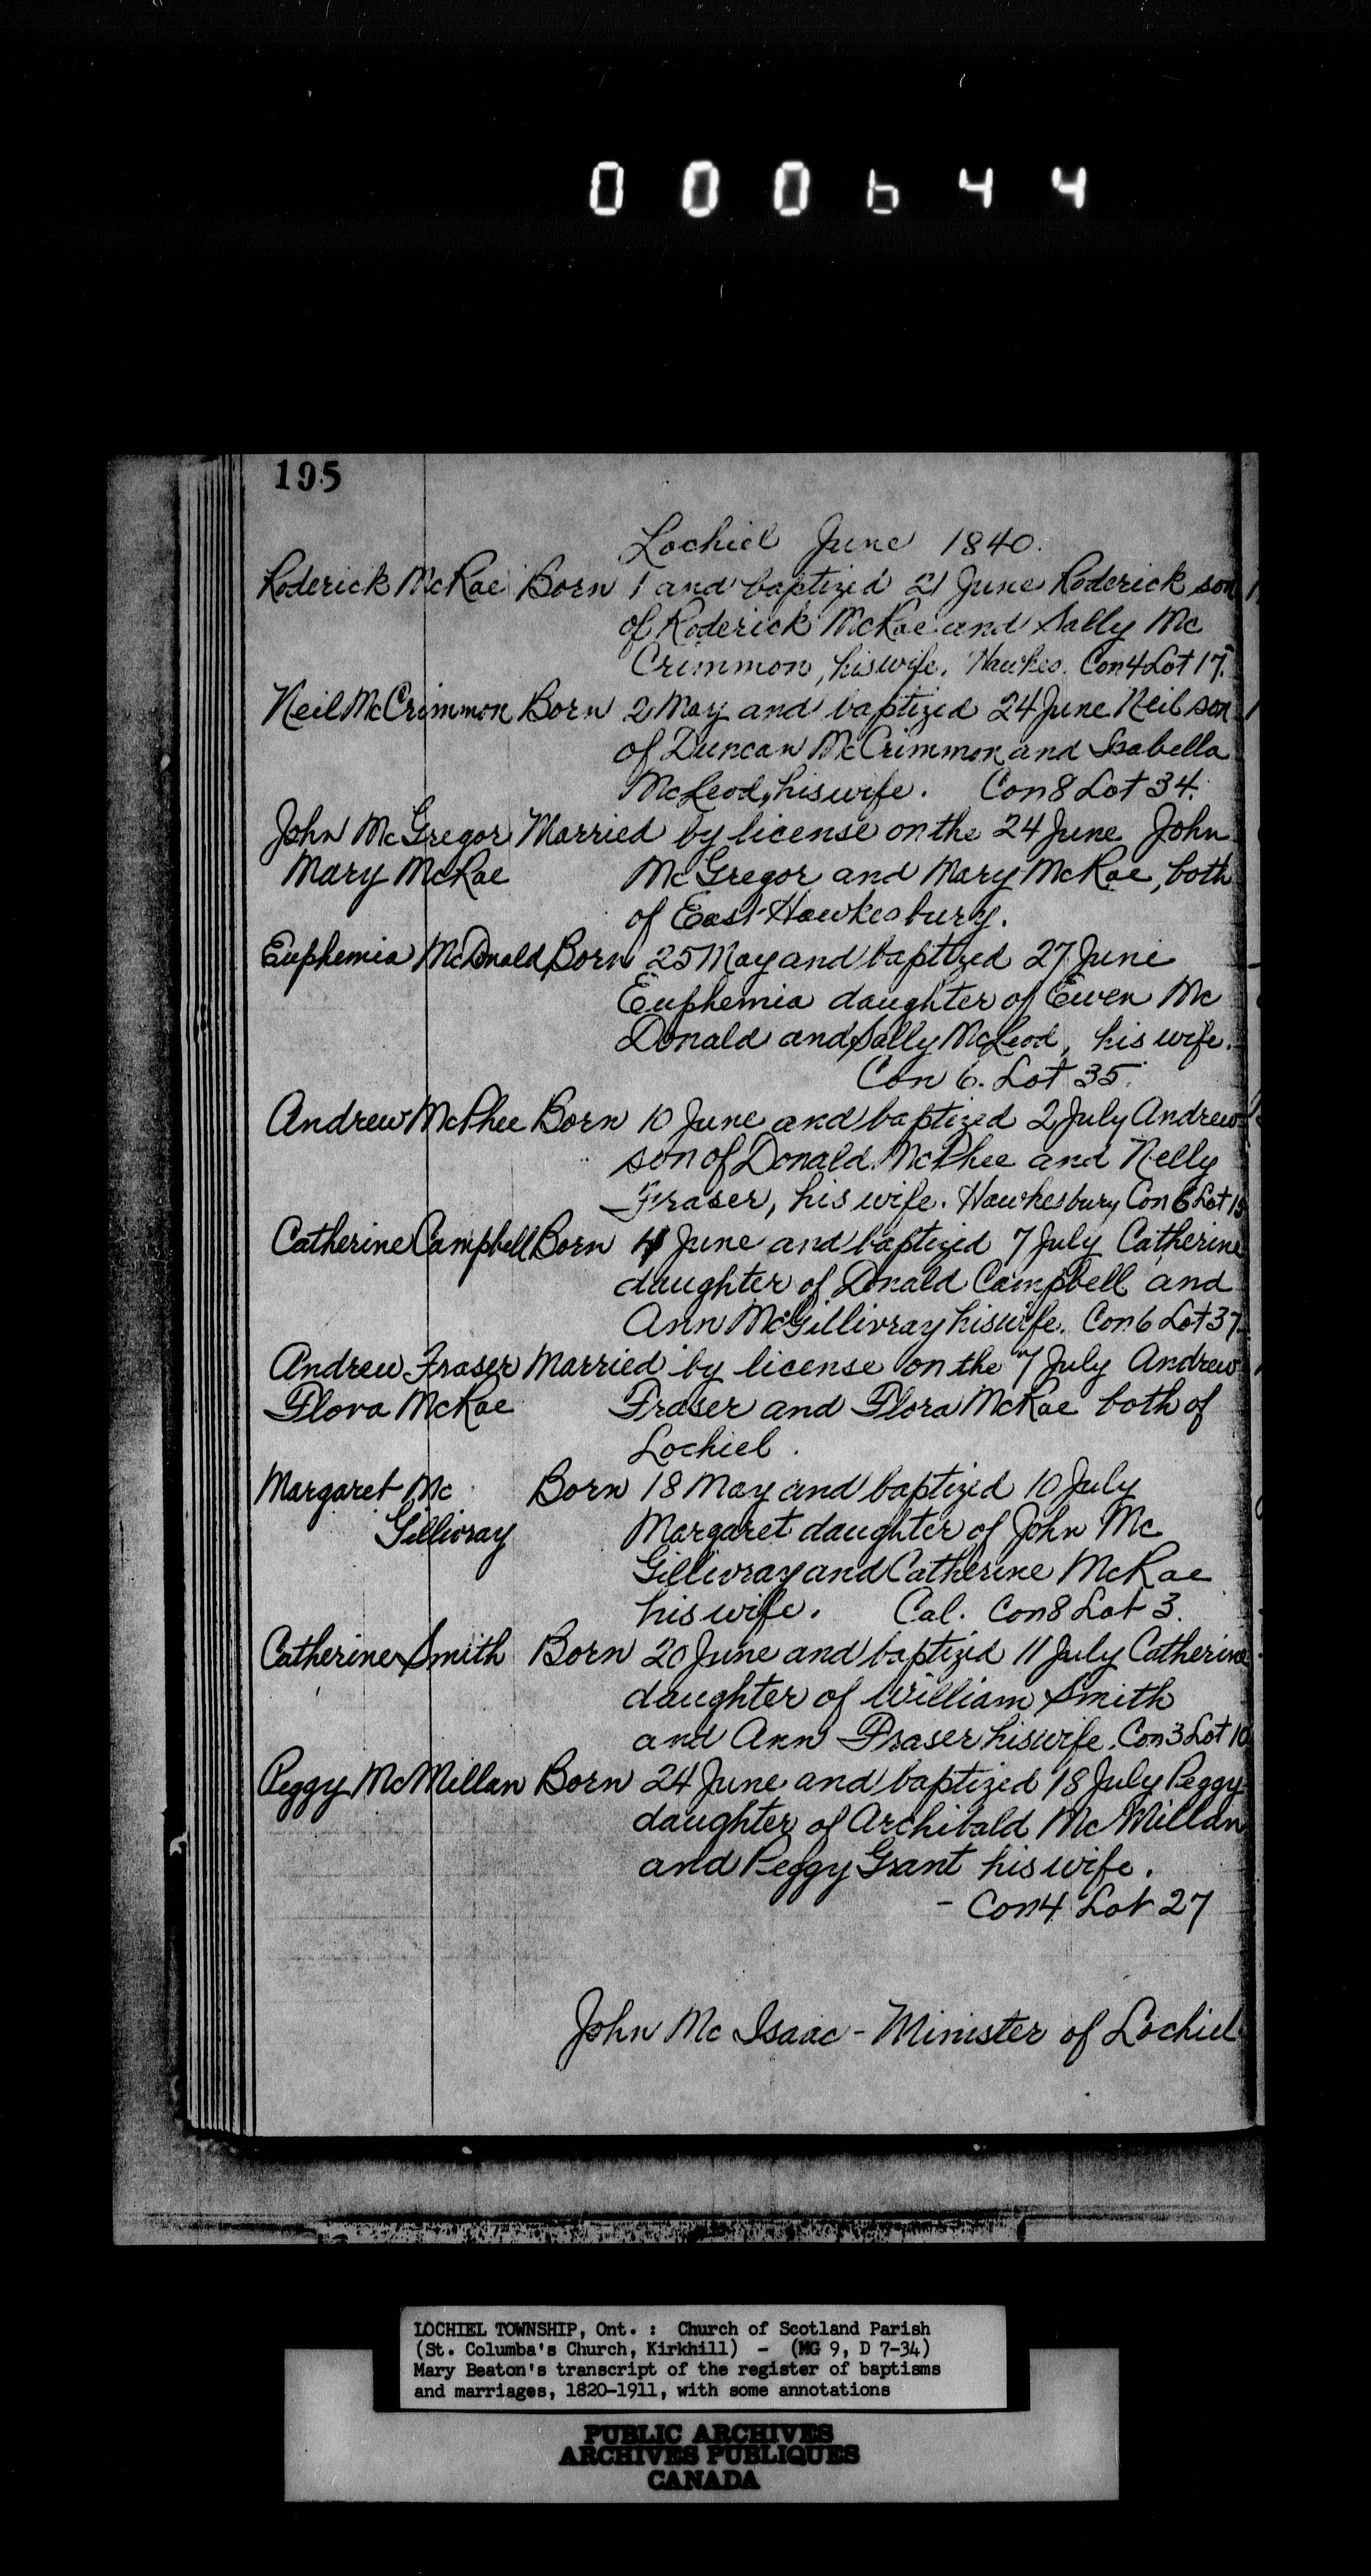 000644
195
Lochiel June 1840.
Roderick McRae Born 1 and baptized 21 June Roderick son
of Roderick McRae and Sally Mc
Crimmon, his wife. Hawkes. Con 4 Lot 17.
Neil McCrimmon Born 2 May and baptized 24 June Neil son
of Duncan McCrimmon and Isabella
McLeod, his wife. Con 8 Lot 34.
John McGregor Married by license on the 24 June John
Mary McRae McGregor and Mary McRae, both
of East Hawkesbury.
Euphemia McDonald Born 25 May and baptized 27 June
Euphemia daughter of Ewen Mc
Donald and Sally McLeod, his wife.
Con 6. Lot 35.
Andrew McPhee Born 10 June and baptized 2 July Andrew
son of Donald McPhee and Nelly
Fraser, his wife. Hawkesbury Con 6 Lot 15
Catherine Campbell Born 4 June and baptized 7 July Catherine
daughter of Donald Campbell and
Ann McGillivray his wife. Con 6 Lot 37
Andrew Fraser Married by license on the 7 July Andrew
Flora McRae Fraser and Flora McRae both of
Lochiel.
Margaret Mc Born 18 May and baptized 10 July
Gillivray Margaret daughter of John Mc
Gillivray and Catherine McRae
his wife. Cal. Con 8 Lot 3.
Catherine Smith Born 20 June and baptized 11 July Catherine
daughter of William Smith
and Ann Fraser his wife. Con 3 Lot 10
Peggy McMillan Born 24 June and baptized 18 July Peggy
daughter of Archibald McMillan
and Peggy Grant his wife.
- Con 4 Lot 27
John McIsaac - Minister of Lochiel
LOCHIEL TOWNSHIP, Ont. : Church of Scotland Parish
(St. Columba's Church, Kirkhill) - (MG 9, D 7-34)
Mary Beaton's transcript of the register of baptisms
and marriages, 1820-1911, with some annotations
PUBLIC ARCHIVES
ARCHIVES PUBLIQUES
CANADA